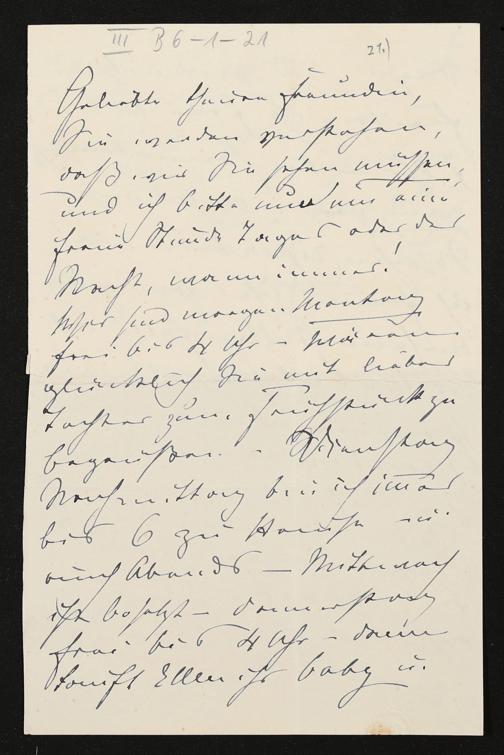 III B 6-1-21
21.)
Geliebte theure Freundin,
Sie werden verstehen,
daß wir Sie sehen müssen,
und ich bitte nur um eine
freie Stunde Tages oder der
Nacht, wann immer!
Wir sind morgen Montag
frei bis 4 Uhr – wären
glücklich Sie mit lieber
Tochter zum Frühstück zu
begrüßen. – Dienstag
Nachmittag bin ich immer
bis 6 zu Hause u.
auch Abends – Mittwoch
ist besetzt – Donnerstag
frei bis 4 Uhr – dann
tauft Ellen ihr baby u.